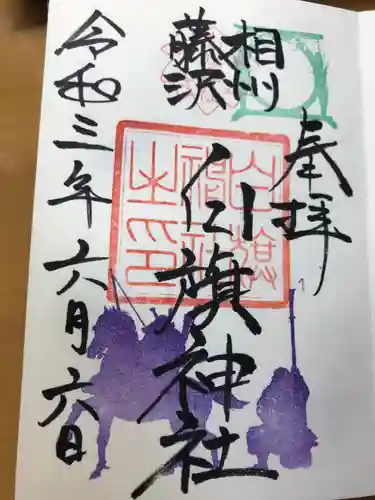 奉拝
相州
藤沢
白旗神社
白旗神社之印
令和三年六月六日